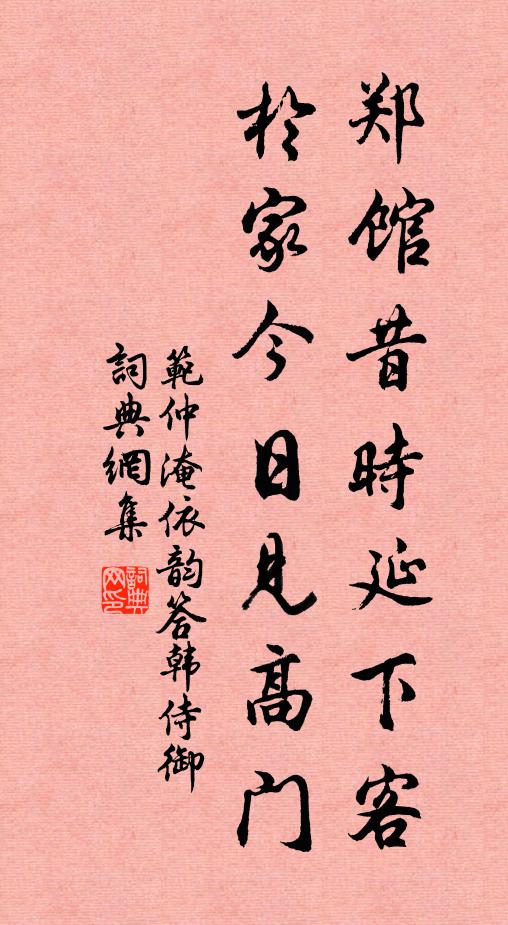 郑馆昔時延下客
於家今日見高门
範仲淹依韵答韩侍御
詞典網集
詞典网印